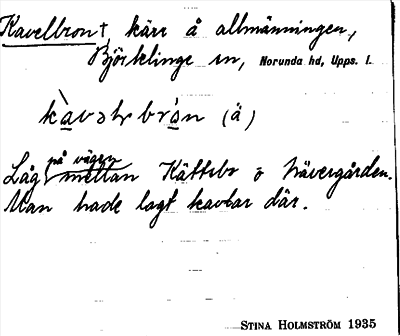 Kavelbron †, kärr å allmänningen,
Björklinge sn, Norunda hd, Upps. l.
kàvəl brón (ä)
på vägen
Låg mellan Kättsbo o Nävergården.
Man hade lagt kavlar där.
STINA HOLMSTRÖM 1935